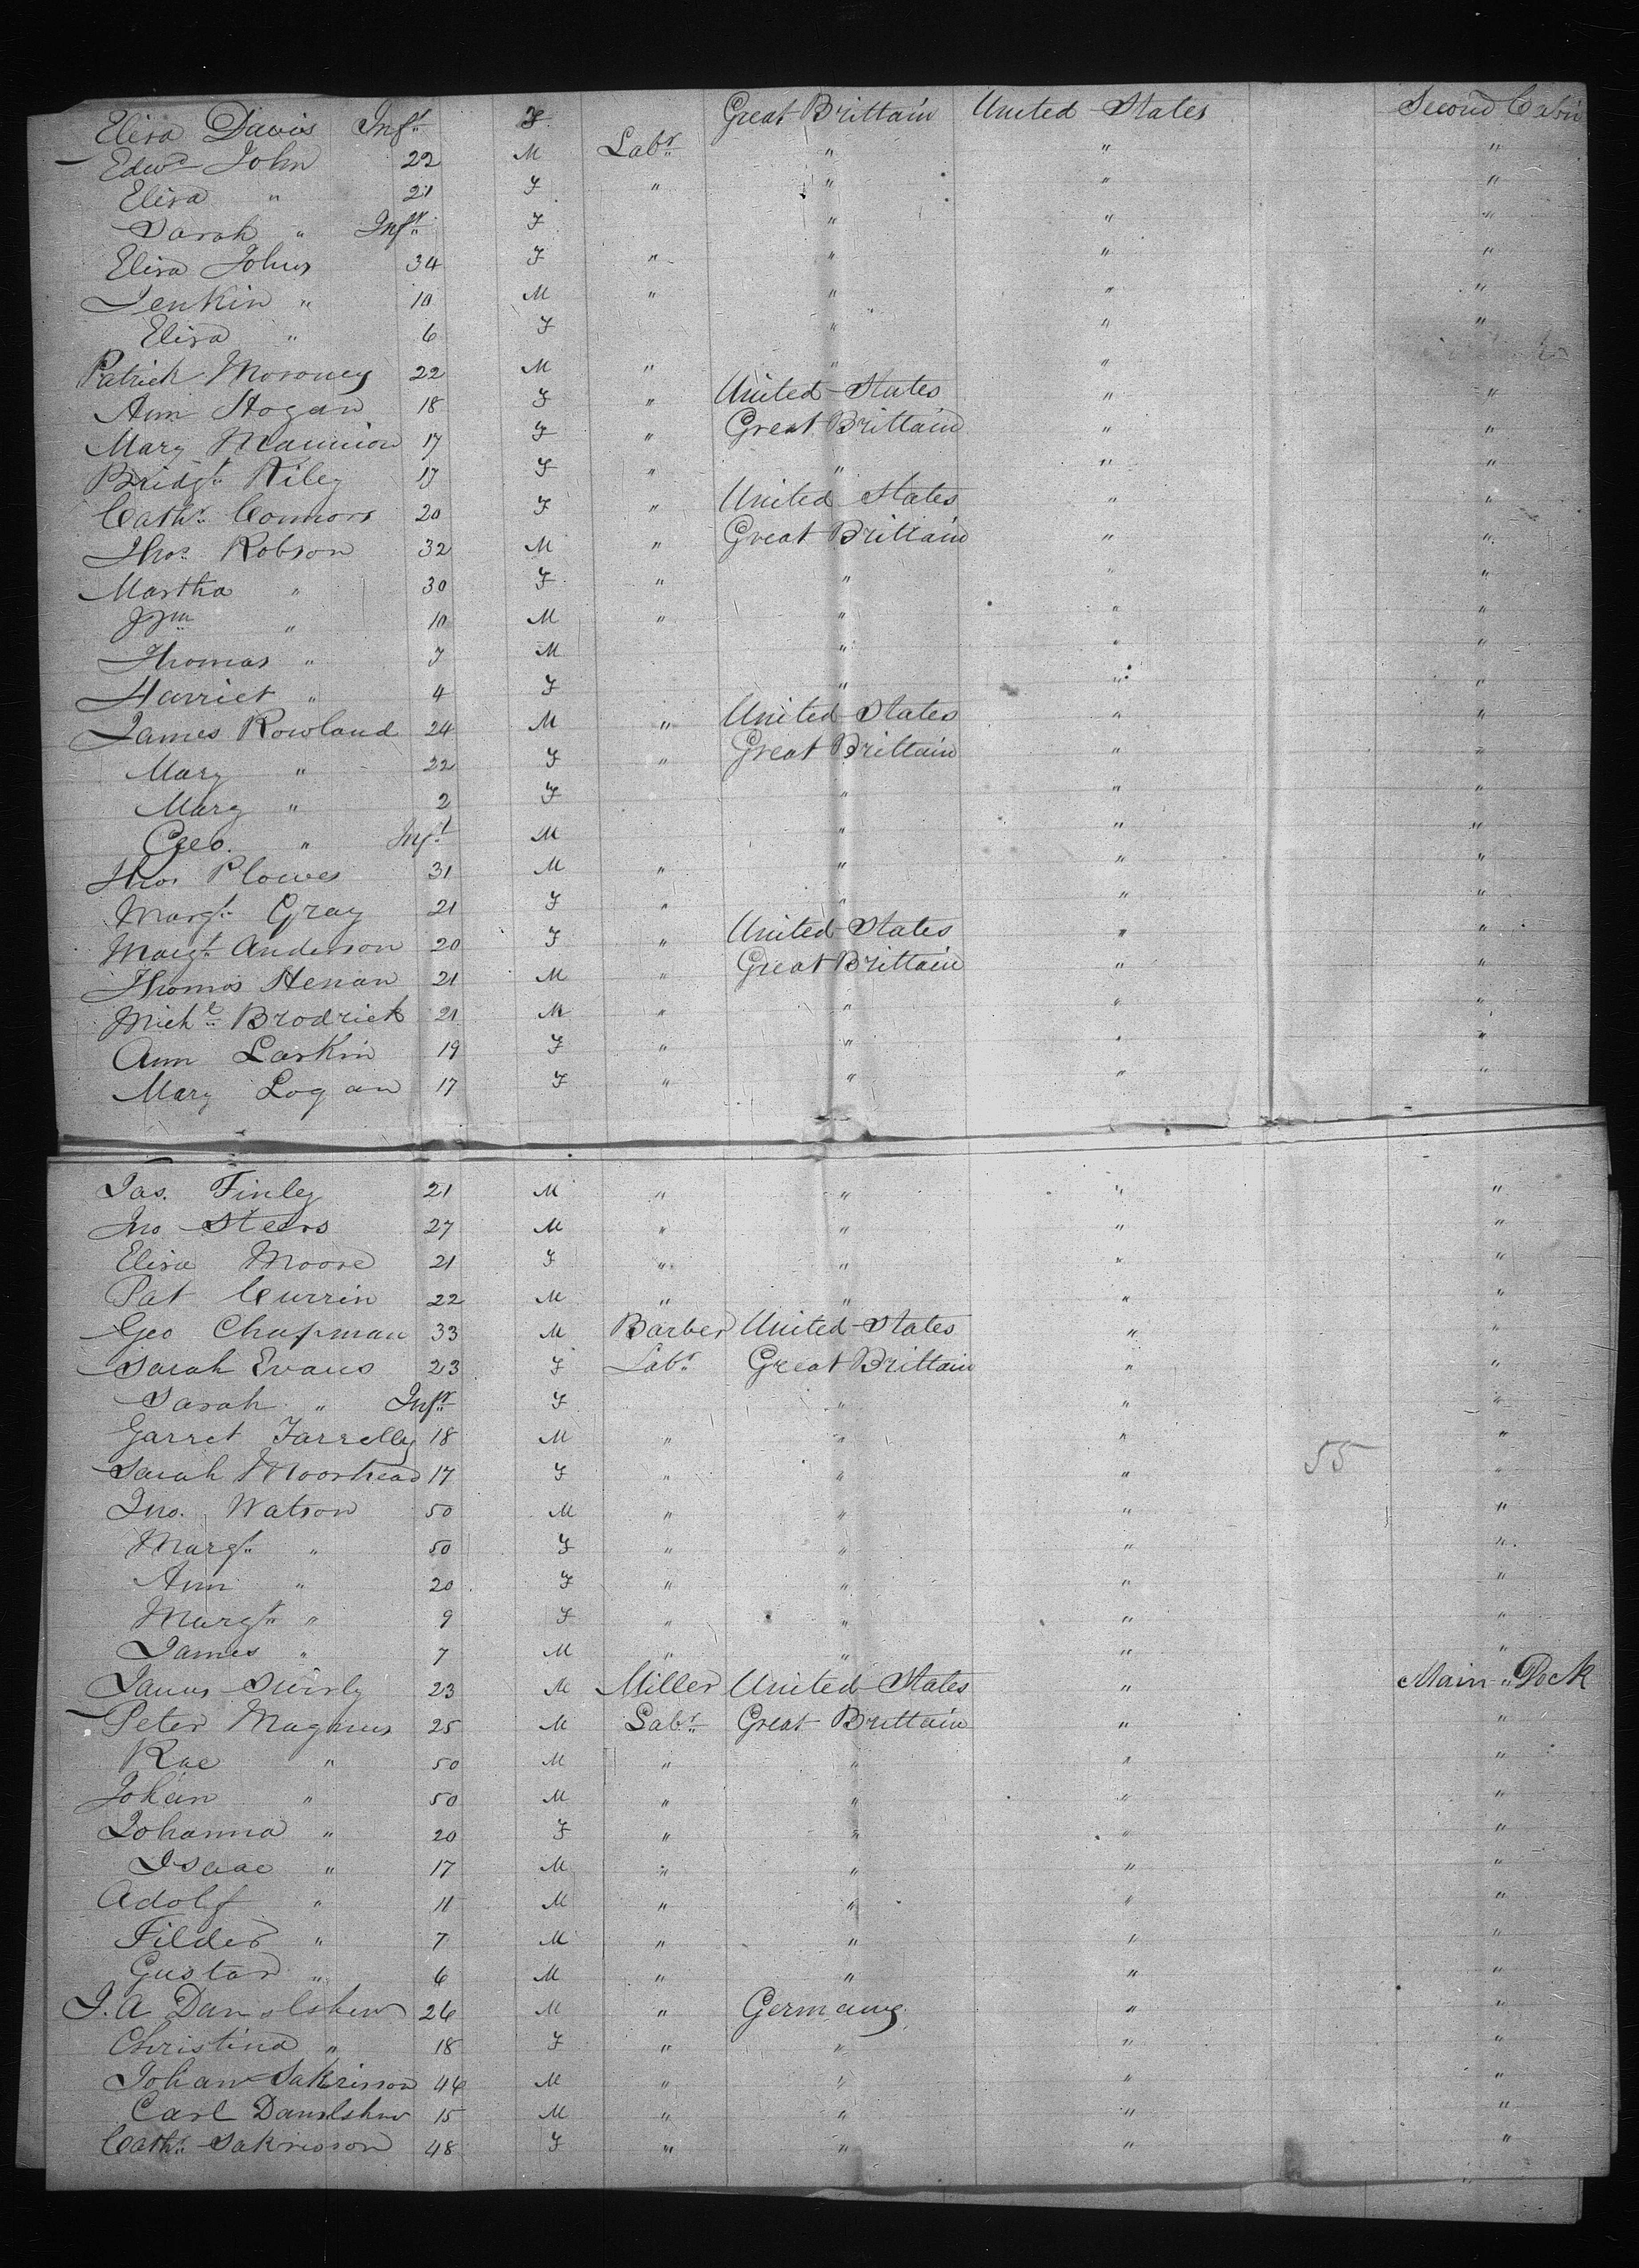 Elisa Davis Inft F Great Brittain United States Second Cabin
Edwd John 22 M Labr " " "
Elisa " 21 F " " " "
Sarah " Inft F " " "
Elisa Johns 34 F " " " "
Jenkin " 10 M " " " "
Elisa " 6 F " " "
Patrick Moroney 22 M " " "
Ann Hogan 18 F " United States " "
Mary Mannion 17 F " Great Brittain " "
Bridgt Riley 17 F " " " "
Cathe Connors 20 F " United States " "
Thos Robson 32 M " Great Brittain " "
Martha " 30 F " " " "
Wm " 10 M " " " "
Thomas " 7 M " " "
Harriet " 4 F " " "
James Rowland 24 M " United States " "
Mary " 22 F " Great Brittain " "
Mary " 2 F " " "
Geo. " Inft M " " "
Thos Plowes 31 M " " " "
Margt Gray 21 F " " " "
Margt Anderson 20 F " United States " "
Thomas Henan 21 M " Great Brittain " "
Michl Brodrick 21 M " " " "
Ann Larkin 19 F " " " "
Mary Logan 17 F " " " "
Jas. Finley 21 M " " " "
Jno Steers 27 M " " " "
Elisa Moore 21 F " " " "
Pat Currin 22 M " " " "
Geo Chapman 33 M Barber United States " "
Sarah Evans 23 F Labr Great Brittain " "
Sarah " Inft F " " "
Garret Farrelly 18 M " " " "
Sarah Moorhead 17 F " " " 55 "
Jno. Watson 50 M " " " "
Margt " 50 F " " " "
Ann " 20 F " " " "
Margt " 9 F " " " "
James " 7 M " " " "
James 23 M Miller United States " Main Deck
Peter Magnus 25 M Labr Great Brittain " "
Rae " 50 M " " " "
Johan " 50 M " " " "
Johanna " 20 F " " " "
Isaac " 17 M " " " "
Adolf " 11 M " " " "
Filder " 7 M " " " "
Gustav " 6 M " " " "
J. A 26 M " Germany " "
Christina " 18 F " " " "
Johan Sakrisson 46 M " " " "
Carl 15 M " " " "
Cathe Sakrisson 48 F " " " "